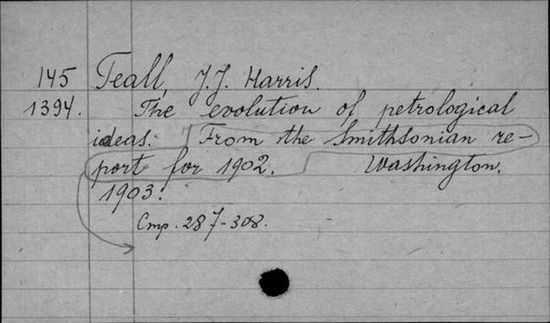 145 Teall, J.J. Harris.
1394. The evolution of petrological
ideas. From the Smithsonian re-
port for 1902. Washington.
1903.
Стр. 287-308.